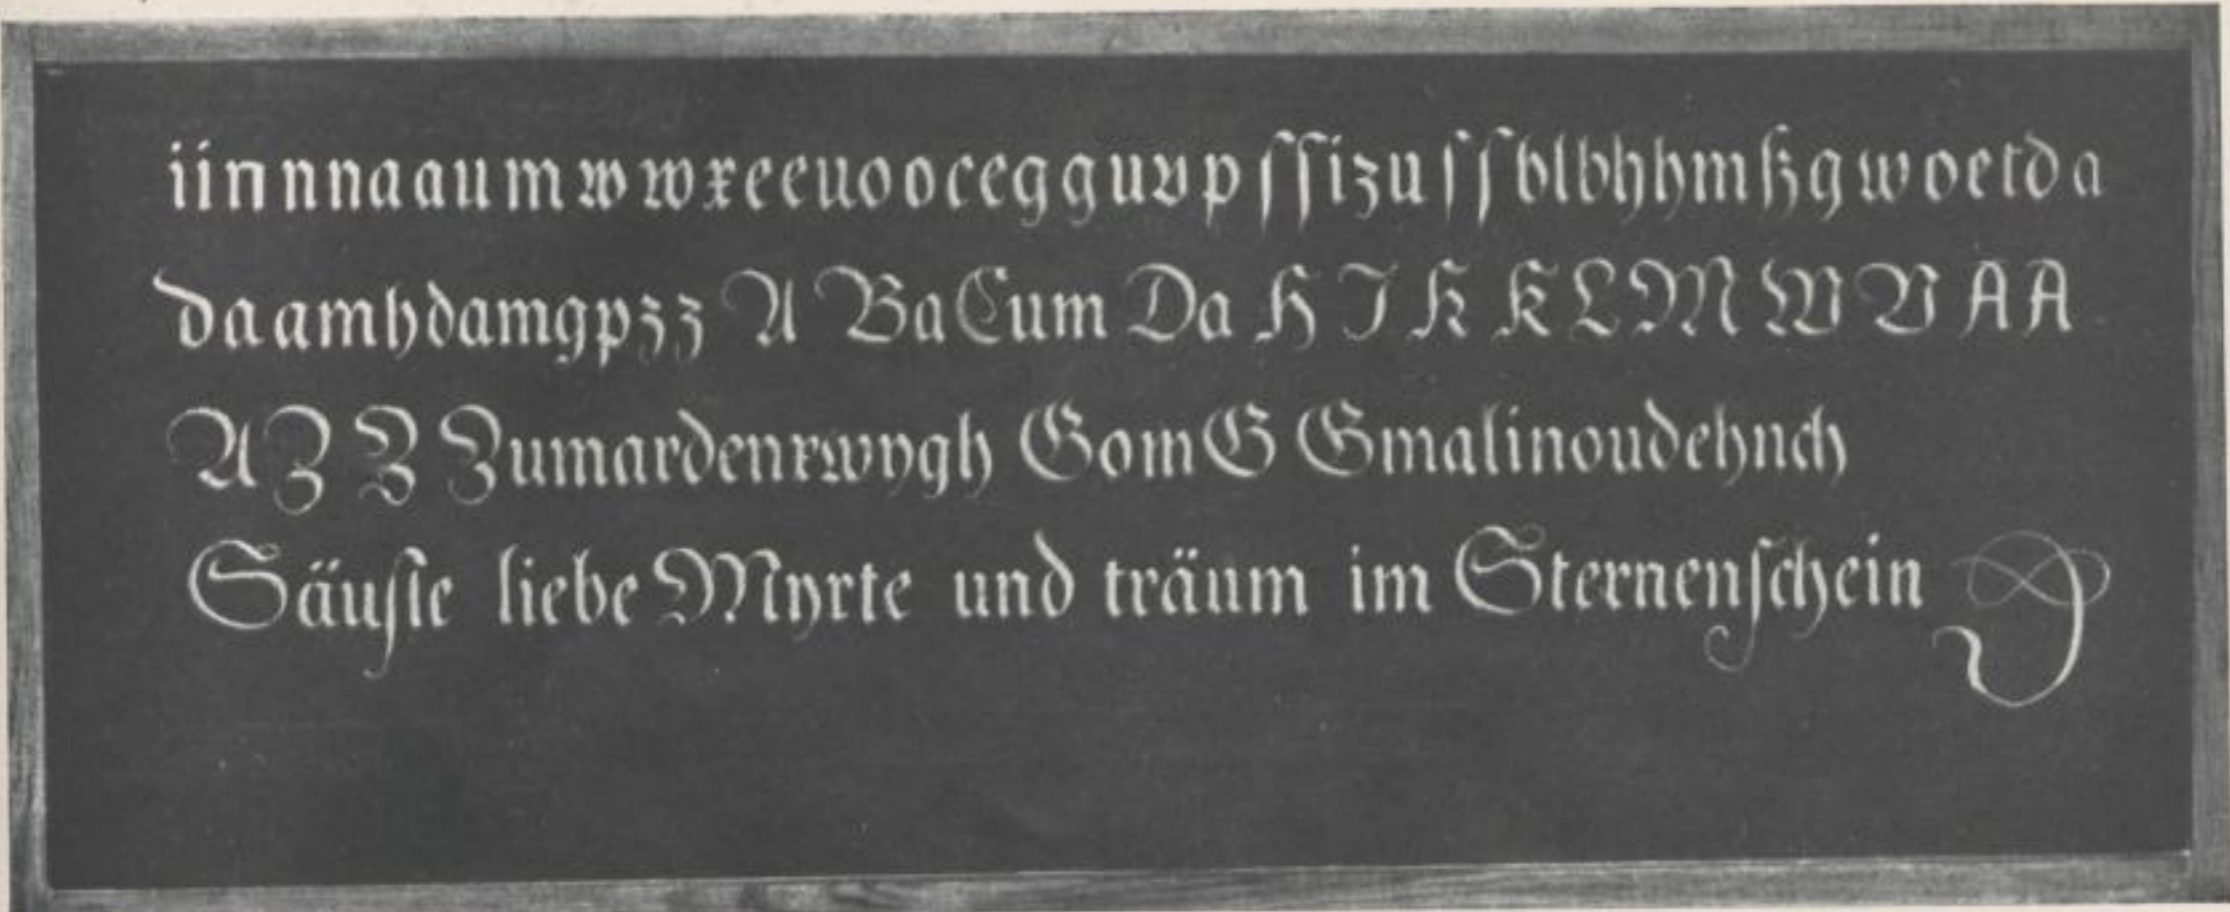 iinnnnaaumwwxeeuoocegguvpſſizuſſblbhhmßgwoetda
daamhdamgpzz A Ba Cum Da H I K K L M W V A A
A Z Z Zumardenxwygh Gom G Gmalinoudehnch
Säuſle liebe Myrte und träum im Sternenſchein